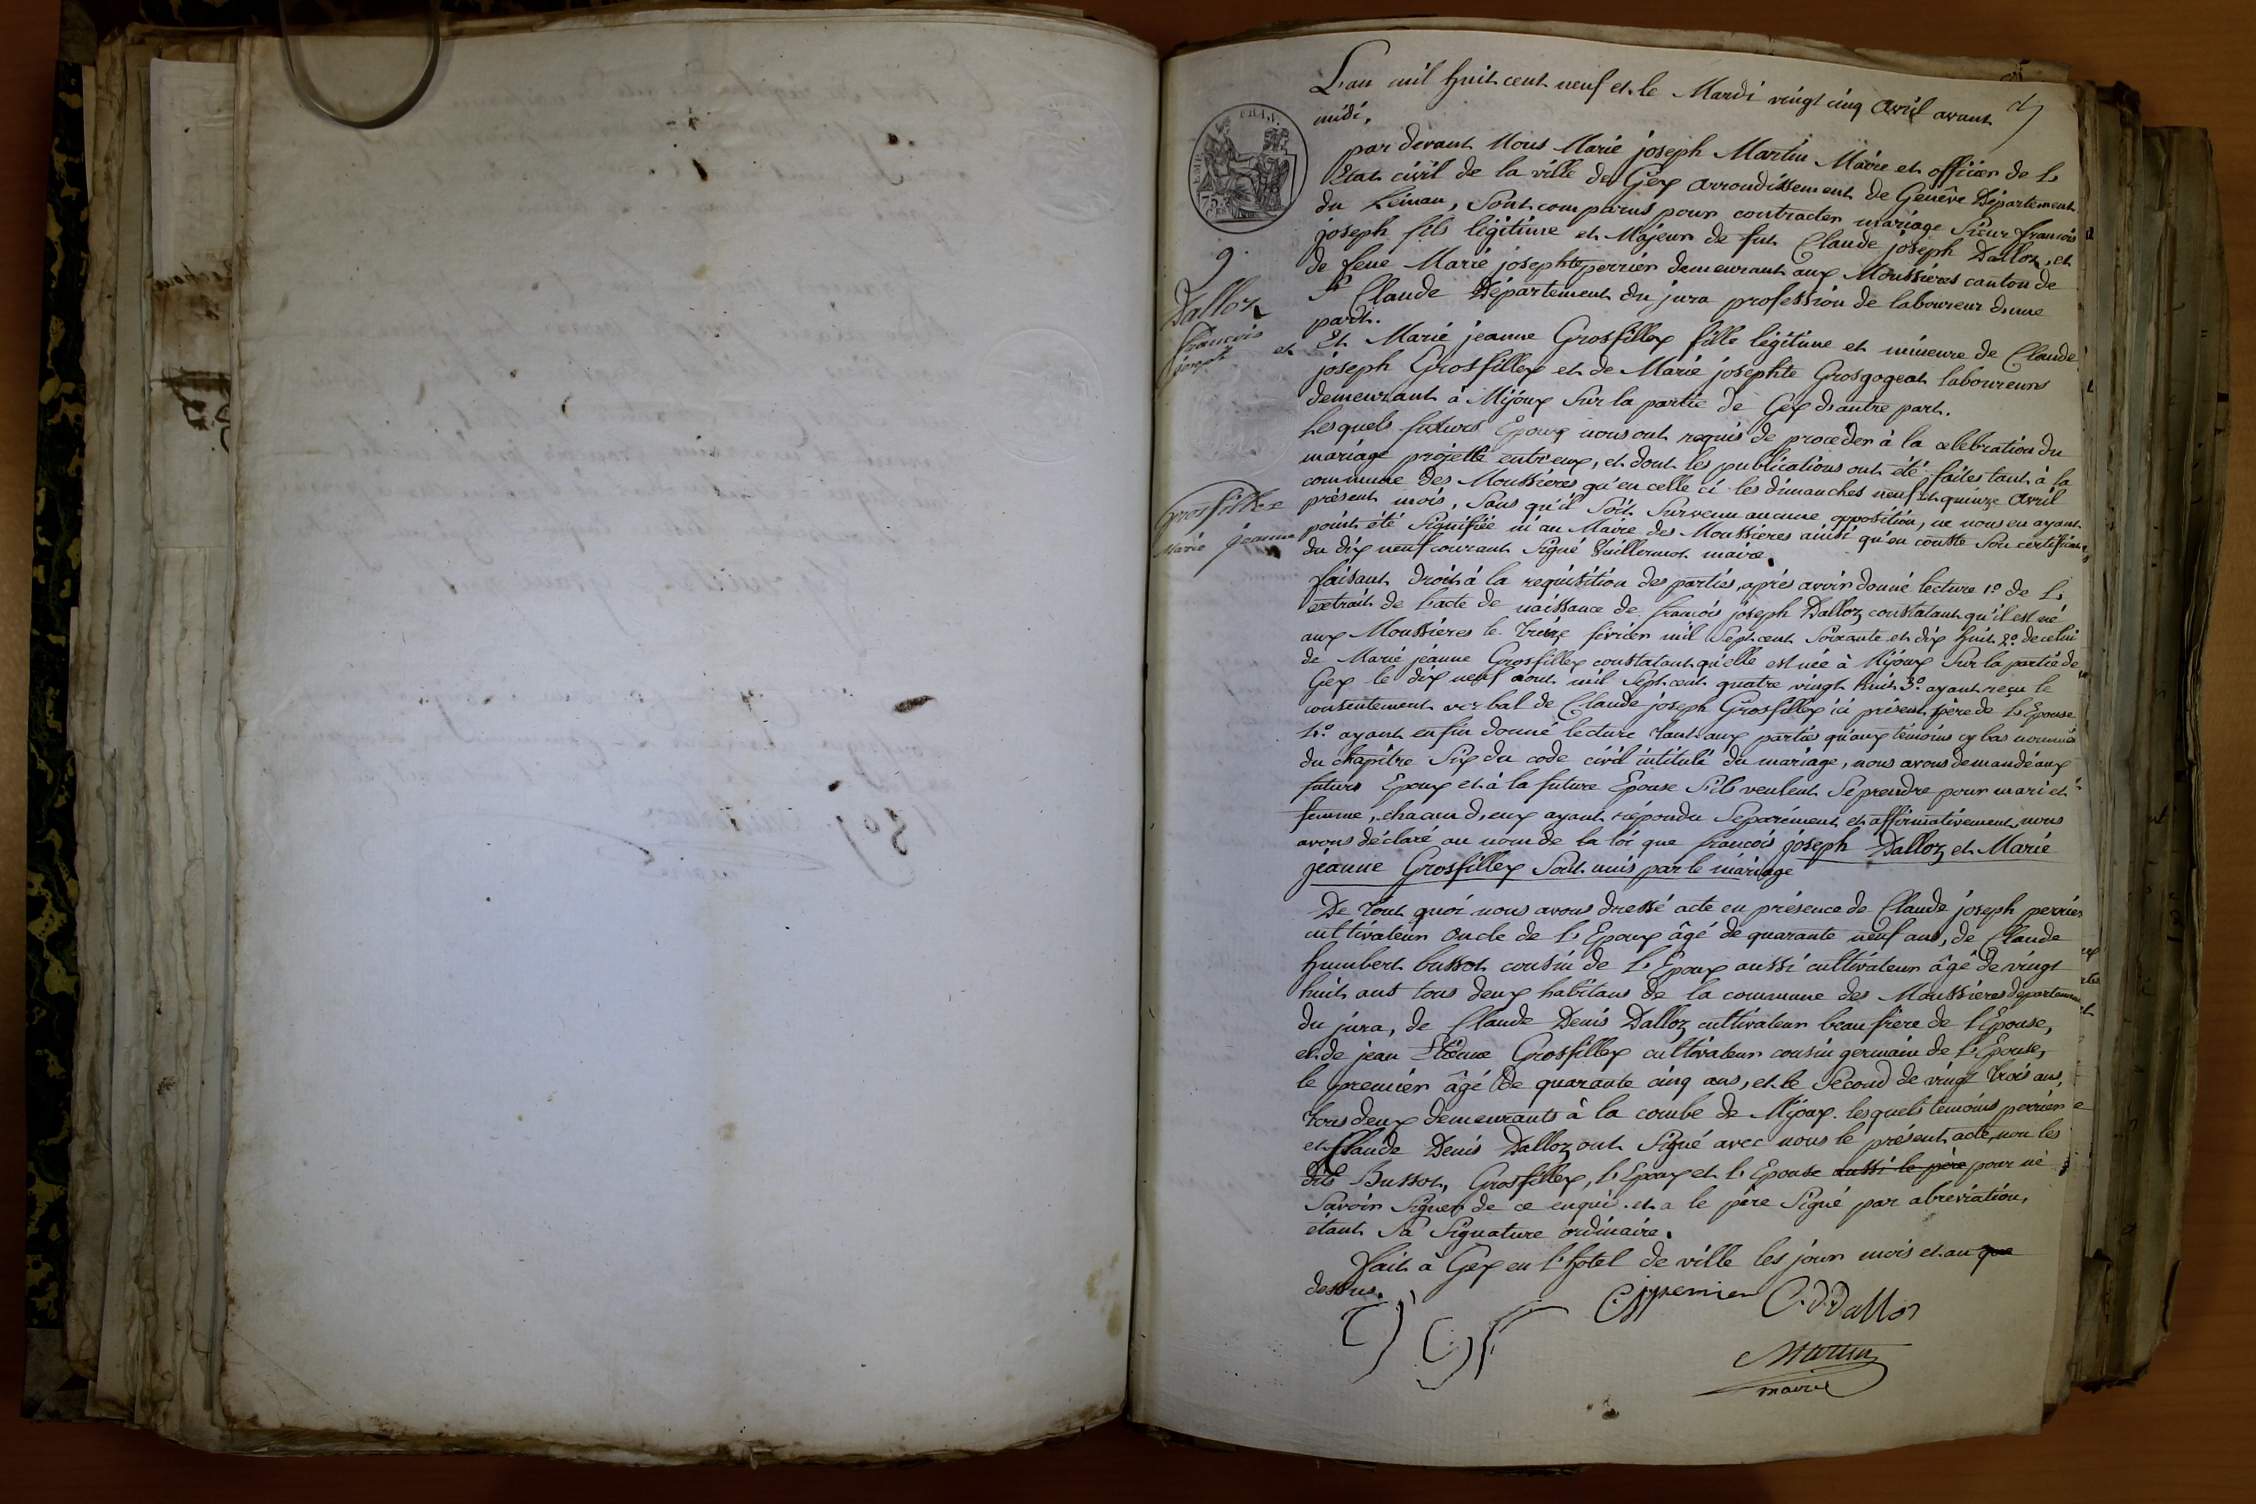 L'an mil huit cent neuf et le Mardi vingt cinq avril avant
midi,
par devant Nous Marie joseph Martin Maire et officier de L'
Etat civil de la ville de Gex arrondissement de Genève Département
du Léman, Sont comparus pour contracter mariage Sieur françois
joseph fils légitime et Majeur de fut Claude joseph Dalloz, et
de feue Marie josephte perrier demeurant aux Moussieres canton de
St Claude Département du jura profession de laboureur d'une
part.
Et Marie jeanne Grosfillex fille légitime et mineure de Claude
joseph Grosfillex et de Marie josephte Grosgogeat laboureurs
demeurant à Mijoux Sur la partie de Gex d'autre part.
Lesquels futurs Epoux nous ont requis de proceder à la celebration du
mariage projetté entr'eux, et dont les publications ont été faites tant à la
commune des Moussieres qu'en celle ci les dimanches neuf et quinze avril
présent mois, Sans qu'il Soit Survenu aucune opposition, ne nous en ayant
point été Signifiée ni au Maire des Moussieres ainsi qu'en conste Son certificat
du dix neuf courant Signé Vuillermoz maire.
faisant droit à la requisition des parties, après avoir donné lecture 1º de L'
extrait de l'acte de naissance de francois joseph Dalloz constatant qu'il est né
aux Moussieres le treize février mil Sept cent Soixante et dix huit 2º. de celui
de Marie jeanne Grosfillex constatant qu'elle est née à Mijoux Sur la partie de
Gex le dix neuf aout mil Sept cent quatre vingt huit 3º. ayant reçu le
consentement verbal de Claude joseph Grosfillex ici présent père de L'Epouse
4º. ayant enfin donné lecture tant aux parties qu'aux temoins cy bas nommés
du chapitre Six du code civil intitulé du mariage, nous avons demandé aux
futurs Epoux et à la future Epouse S'ils veulent Se prendre pour mari et
femme, chacun d'eux ayant répondu Separément et affirmativement, nous
avons déclaré au nom de la loi que francois joseph Dalloz et Marie
jeanne Grosfillex Sont unis par le mariage
De tout quoi nous avons dressé acte en présence de Claude joseph perrier
cultivateur oncle de L'Epoux âgé de quarante neuf ans, de Claude
humbert bussot cousin de L'Epoux aussi cultivateur âgé de vingt
huit ans tous deux habitans de la commune des Moussieres département
du jura, de Claude Denis Dalloz cultivateur beau frère de l'Epouse,
et de jean Etienne Grosfillex cultivateur cousin germain de L'Epouse,
le premier âgé de quarante cinq ans, et le Second de vingt trois ans,
tous deux demeurants à la combe de Mijoux. lesquels temoins perrier
et Claude Denis Dalloz ont Signé avec nous le présent acte, non les
dits Bussot, Grosfillex, L'Epoux et L'Epouse aussi le père pour ne
Savoir Signer de ce enquis. et a le père Signé par abreviation,
etant Sa Signature ordinaire.
Fait à Gex en l'hotel de ville les jour mois et an que
dessus.
Cjjperrier C.D.Dalloz
CJ CJF
Martin
maire
9.
Dalloz
francois
joseph et
Grosfillex
Marie jeanne